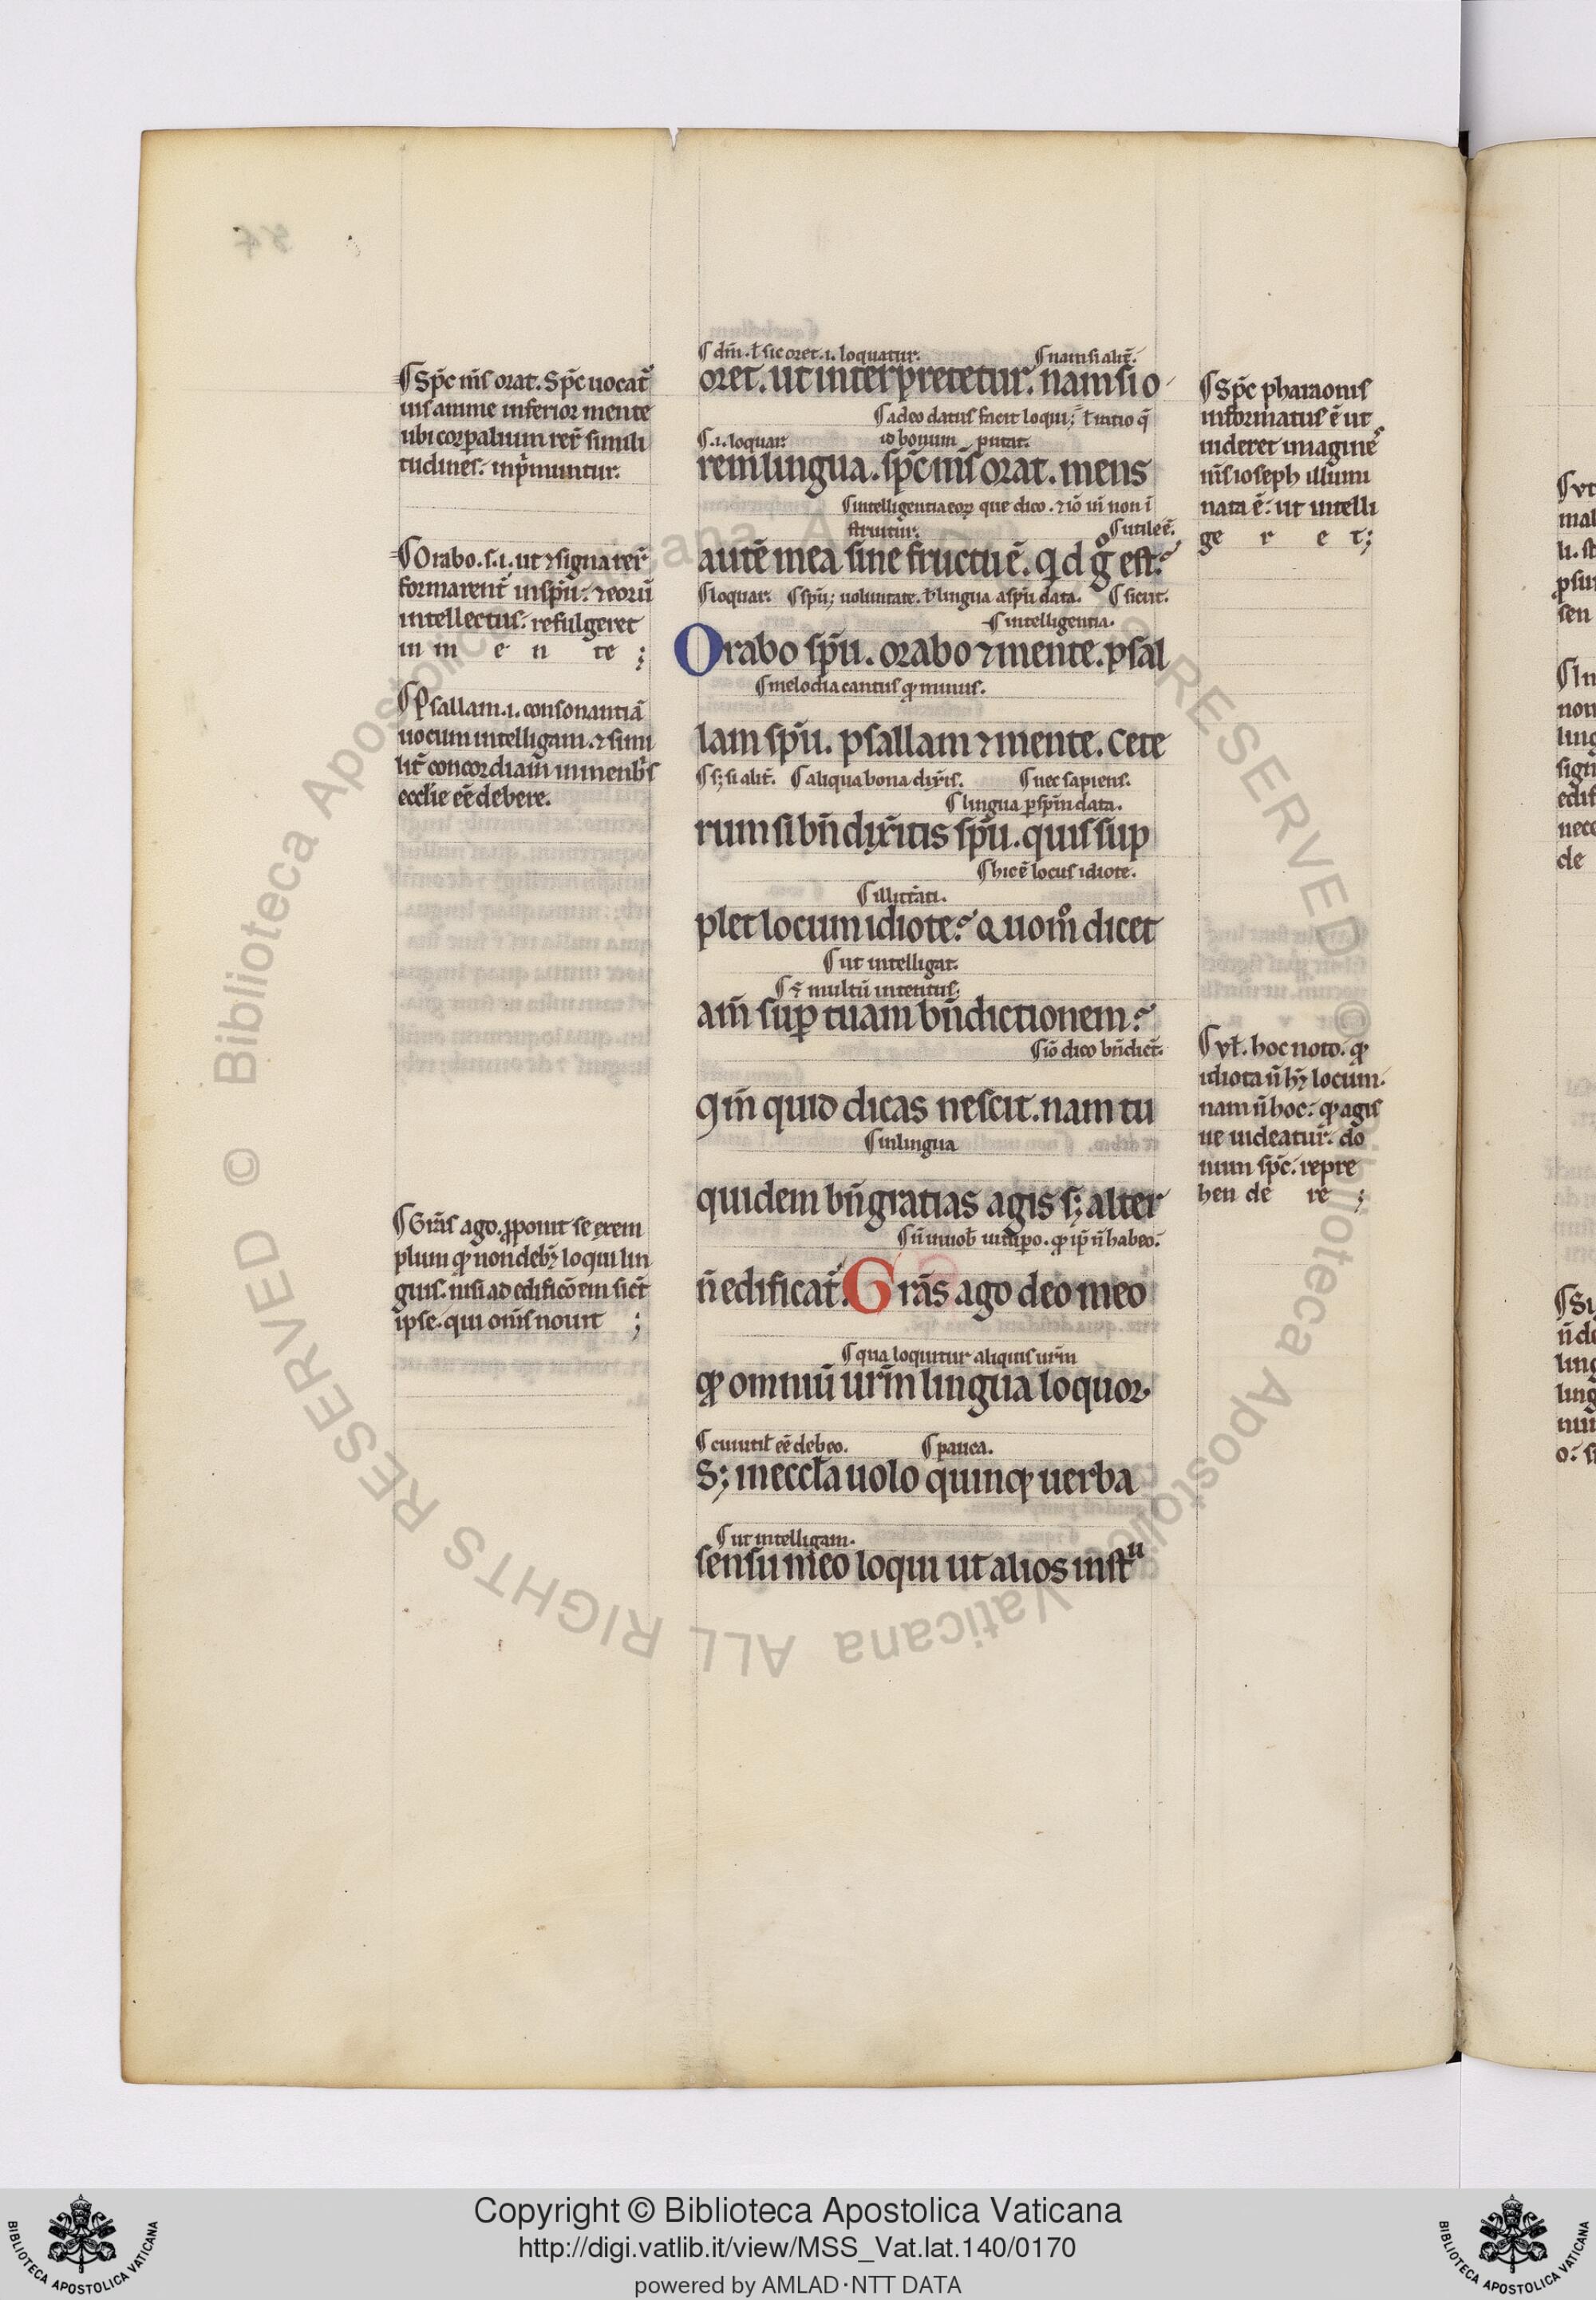 ¶ Spc̄ nr̄s orat. Spc̄ uocat̄
uis anime inferior mente
ubi corꝑalium rer̄ simili
tudines. inp̄muntur.
¶ Orabo .s.i. ut ⁊ signa rer̄
formarent̄ in spū. ⁊ eorū
intellectus. refulgeret
in m e n te ;
¶ Psallam .i. consonantiā
uocum intelligam. ⁊ simi
lit̄ concordiam̄ in menb̄s
eccl̄ie eē debere.
¶ Gr̄as ago. ꝓponit se exem
plum qͥ non debꝫ loqui lin
guis. nisi ad edificōem sicut̄
ipse. qui om̄s nouit ;
¶ dm̄. ł sic oret .i. loquatur. ¶ nam si alit̄.
oret. ut interpretetur. nam si o
¶ a deo datus facit loqui; ł ratio q̄
¶ .i. loquar. id bonum putat.
rem lingua. spc̄ m̄s orat. mens
¶ intelligentia eoꝝ que dico. ⁊ iō in̄ non i
struitur. ¶ utile ē.
autē mea sine fructu ē. q d g̊ est.
¶ loquar. ¶ spū; uoluntate. ł lingua a spū data. ¶ sicut.
¶ intelligentia.
Orabo spū. orabo ⁊ mente. psal
¶ melodia cantus qͥ minus.
lam spū. psallam ⁊ mente. Cete
¶ sꝫ si alit̄. ¶ aliqua bona dix̄is. ¶ nec sapiens.
¶ lingua ꝑ spm̄ data.
rum si bn̄dix̄itis spū. quis sup
¶ hic ē locus idiote.
¶ illitt̄ati.
plet locum idiote. Quom̊ dicet
¶ ut intelligat.
¶ multū intentus.
am̄ suꝑ tuam bn̄dictionem.
¶ iō dico bn̄dict̄.
qm̄ quid dicas nescit. nam tu
¶ in lingua
quidem bn̄ gratias agis sꝫ alter
n̄ edificat̄. Gr̄as ago deo meo
¶ qua loquitur aliquis ur̄m
qͥ omniū ur̄m lingua loquor.
¶ cui util̄ eē debeo. ¶ pauca.
Sꝫ in eccl̄a uolo quinqꝫ uerba
¶ ut intelligam.
sensu meo loqui ut alios instͧ
¶ Spc̄ pharaonis
informatus ē ut
uideret imagines
m̄s ioseph illumi
nata ē. ut intelli
ge r e t ;
¶ Vł. hoc noto. qͥ
idiota n̄ hꝫ locum.
nam n̄ hoc. qͥ agis
ne uideatur. do
num spc̄. repre
hen de re ;
Copyright © Biblioteca Apostolica Vaticana
http://digi.vatlib.it/view/MSS_Vat.lat.140/0170
powered by AMLAD·NTT DATA
BIBLIOTECA APOSTOLICA VATICANA
BIBLIOTECA APOSTOLICA VATICANA